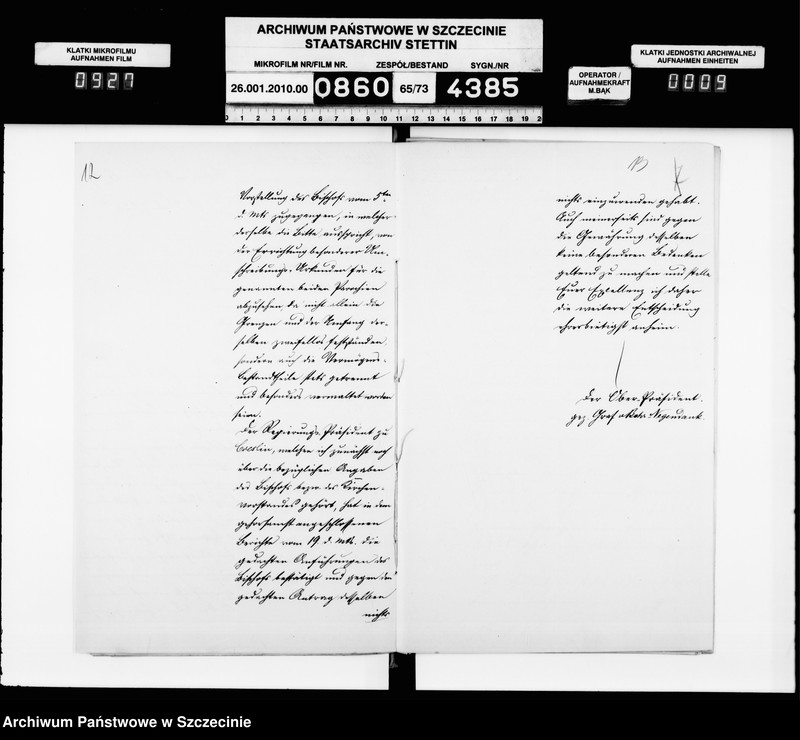 ARCHIWUM PAŃSTWOWE W SZCZECINIE
STAATSARCHIV STETTIN
KLATKI MIKROFILMU
AUFNAHMEN FILM
0927
MIKROFILM NR/FILM NR. ZESPÓŁ/BESTAND SYGN./NR
26.001.2010.00 0860 65/73 4385
OPERATOR /
AUFNAHMEKRAFT
M.BĄK
KLATKI JEDNOSTKI ARCHIWALNEJ
AUFNAHMEN EINHEITEN
0009
0 1 2 3 4 5 6 7 8 9 10 11 12 13 14 15 16 17 18 19 2
12
Vorstellung des Bischofs vom 5ten
d. Mts. zugegangen, in welcher
derselbe die Bitte ausspricht, von
der Errichtung besonderer Um-
schreibungs-Urkunden für die
genannten beiden Parochien
abzusehen, da nicht allein die
Grenzen und der Umfang der-
selben zweifellos feststünden
sondern auch die Vermögens-
bestandtheile stets getrennt
und besonders verwaltet worden
seien.
Der Regierungs-Präsident zu
Coeslin, welchen ich zunächst noch
über die bezüglichen Angaben
des Bischofs bezw. des Kirchen-
vorstandes gehört, hat in dem
gehorsamst angeschlossenen
Berichte vom 19. d. Mts. die
gedachten Anführungen des
Bischofs bestätigt und gegen den
gedachten Antrag desselben
nichts
13
nichts einzuwenden gehabt.
Auch meinerseits sind gegen
die Gewährung desselben
keine besonderen Bedenken
geltend zu machen und stelle
Euer Excellenz ich daher
die weitere Entscheidung
ehrerbietigst anheim.
Der Ober-Präsident.
gez. Graf Behr-Negendank.
Archiwum Państwowe w Szczecinie